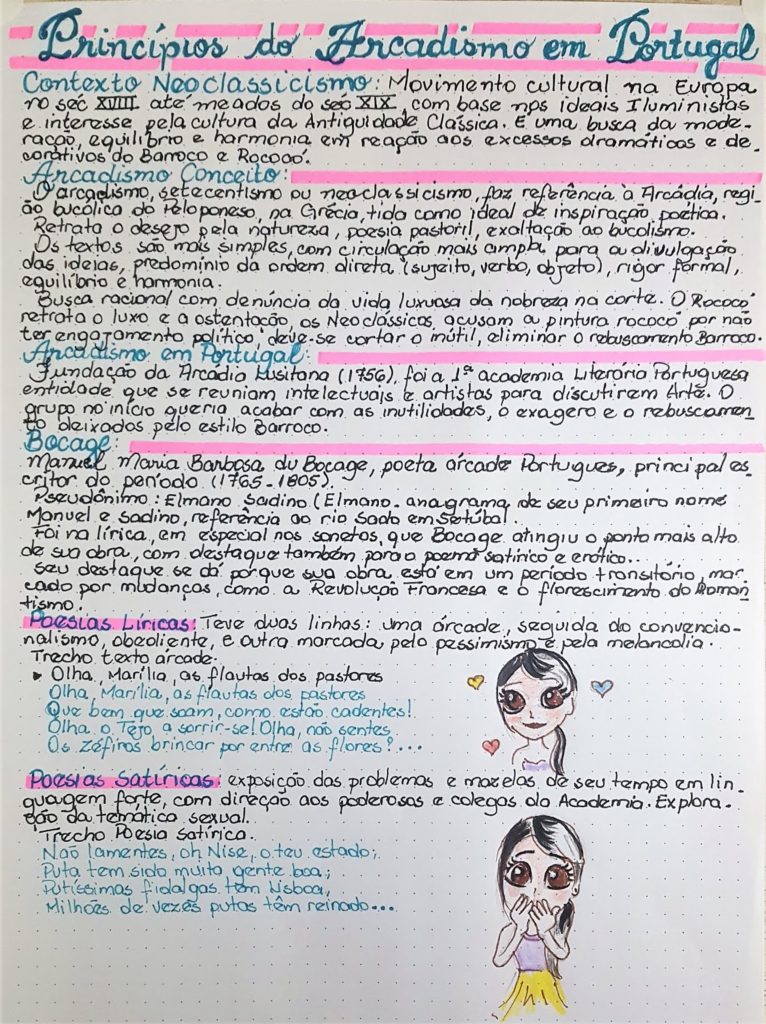 Princípios do Arcadismo em Portugal
Contexto Neoclassicismo: Movimento cultural na Europa
no séc XVIII até meados do séc XIX, com base nos ideais Iluministas
e interesse pela cultura da Antiguidade Clássica. E uma busca da mode-
ração, equilíbrio e harmonia em reação aos excessos dramáticos e de-
corativos do Barroco e Rococó.
Arcadismo Conceito:
O arcadismo, setecentismo ou neoclassicismo, faz referência à Arcádia, regi-
ão bucólica do Peloponeso, na Grécia, tida como ideal de inspiração poética.
Retrata o desejo pela natureza, poesia pastoril, exaltação ao bucolismo.
Os textos são mais simples, com circulação mais ampla, para a divulgação
das ideias, predomínio da ordem direta (sujeito, verbo, objeto), rigor formal,
equilíbrio e harmonia.
Busca racional com denúncia da vida luxuosa da nobreza na corte. O Rococó
retrata o luxo e a ostentação, os Neoclássicos acusam a pintura rococó por não
ter engajamento político, deve-se cortar o inútil, eliminar o rebuscamento Barroco.
Arcadismo em Portugal:
Fundação da Arcádia Lusitana (1756), foi a 1ª academia Literária Portuguesa
entidade que se reuniam intelectuais e artistas para discutirem Arte. O
grupo no início queria acabar com as inutilidades, o exagero e o rebuscamen-
to deixados pelo estilo Barroco.
Bocage:
Manuel Maria Barbosa du Bocage, poeta árcade Portugues, principal es-
critor do período (1765-1805).
Pseudônimo: Elmano Sadino (Elmano-anagrama de seu primeiro nome
Manuel e Sadino, referência ao rio Sado em Setúbal.
Foi na lírica, em especial nos sonetos, que Bocage atingiu o ponto mais alto
de sua obra, com destaque também para o poema satírico e erótico...
Seu destaque se dá porque sua obra está em um período transitório, mar-
cado por mudanças, como a Revolução Francesa e o florescimento do Roman-
tismo.
Poesias Líricas: Teve duas linhas: uma árcade, seguida do convencio-
nalismo, obediente, e outra marcada pelo pessimismo e pela melancolia.
Trecho texto árcade.
▸ Olha, Marília, as flautas dos pastores
Olha, Marília, as flautas dos pastores
Que bem que soam, como estão cadentes!
Olha o Tejo, a sorrir-se! Olha, não sentes
Os Zéfiros brincar por entre as flores?...
Poesias Satíricas: exposição das problemas e mazelas de seu tempo em lin-
guagem forte, com direção aos poderosos e colegas da Academia. Explora-
ção da temática sexual.
Trecho Poesia satírica.
Não lamentes, oh Nise, o teu estado;
Puta tem sido muita gente boa;
Putíssimas fidalgas tem Lisboa,
Milhões de vezes putas têm reinado...